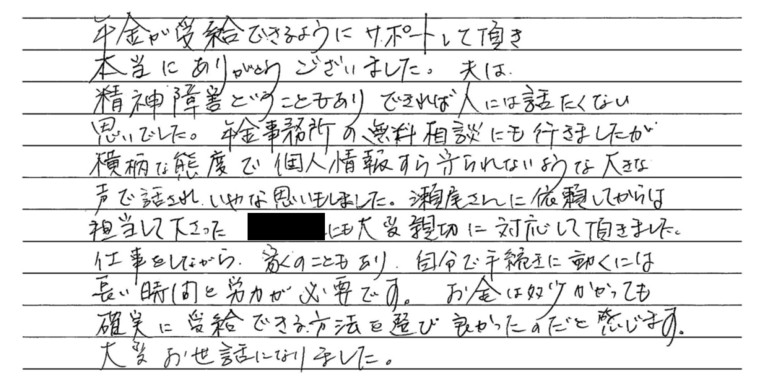 年金が受給できるようにサポートして頂き
本当にありがとうございました。夫は、
精神障害ということもありできれば人には話たくない
思いでした。年金事務所の無料相談にも行きましたが
横柄な態度で個人情報すら守られないような大きな
声で話され、いやな思いもしました。瀬尾さんに依頼してからは
担当して下さった にも大変親切に対応して頂きました。
仕事をしながら、家のこともあり、自分で手続きに動くには
長い時間と労力が必要です。お金は多少かかっても
確実に受給できる方法を選び良かったのだと感じます。
大変お世話になりました。